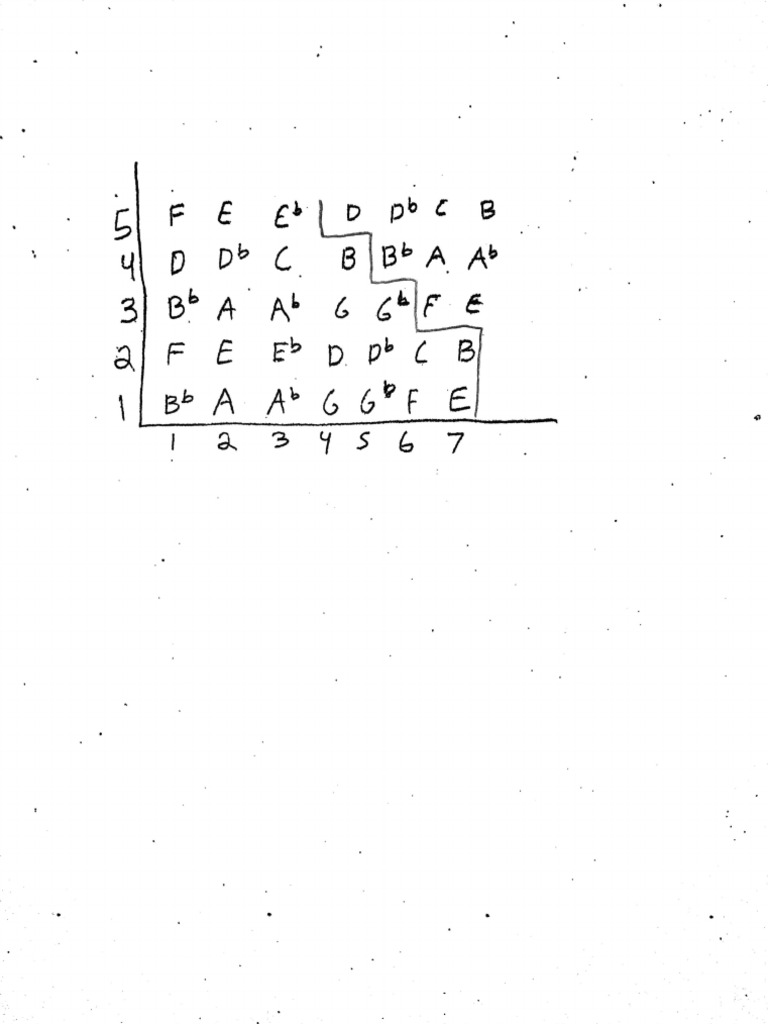 5 F E E♭ D D♭ C B
4 D D♭ C B B♭ A A♭
3 B♭ A A♭ G G♭ F E
2 F E E♭ D D♭ C B
1 B♭ A A♭ G G♭ F E
1 2 3 4 5 6 7